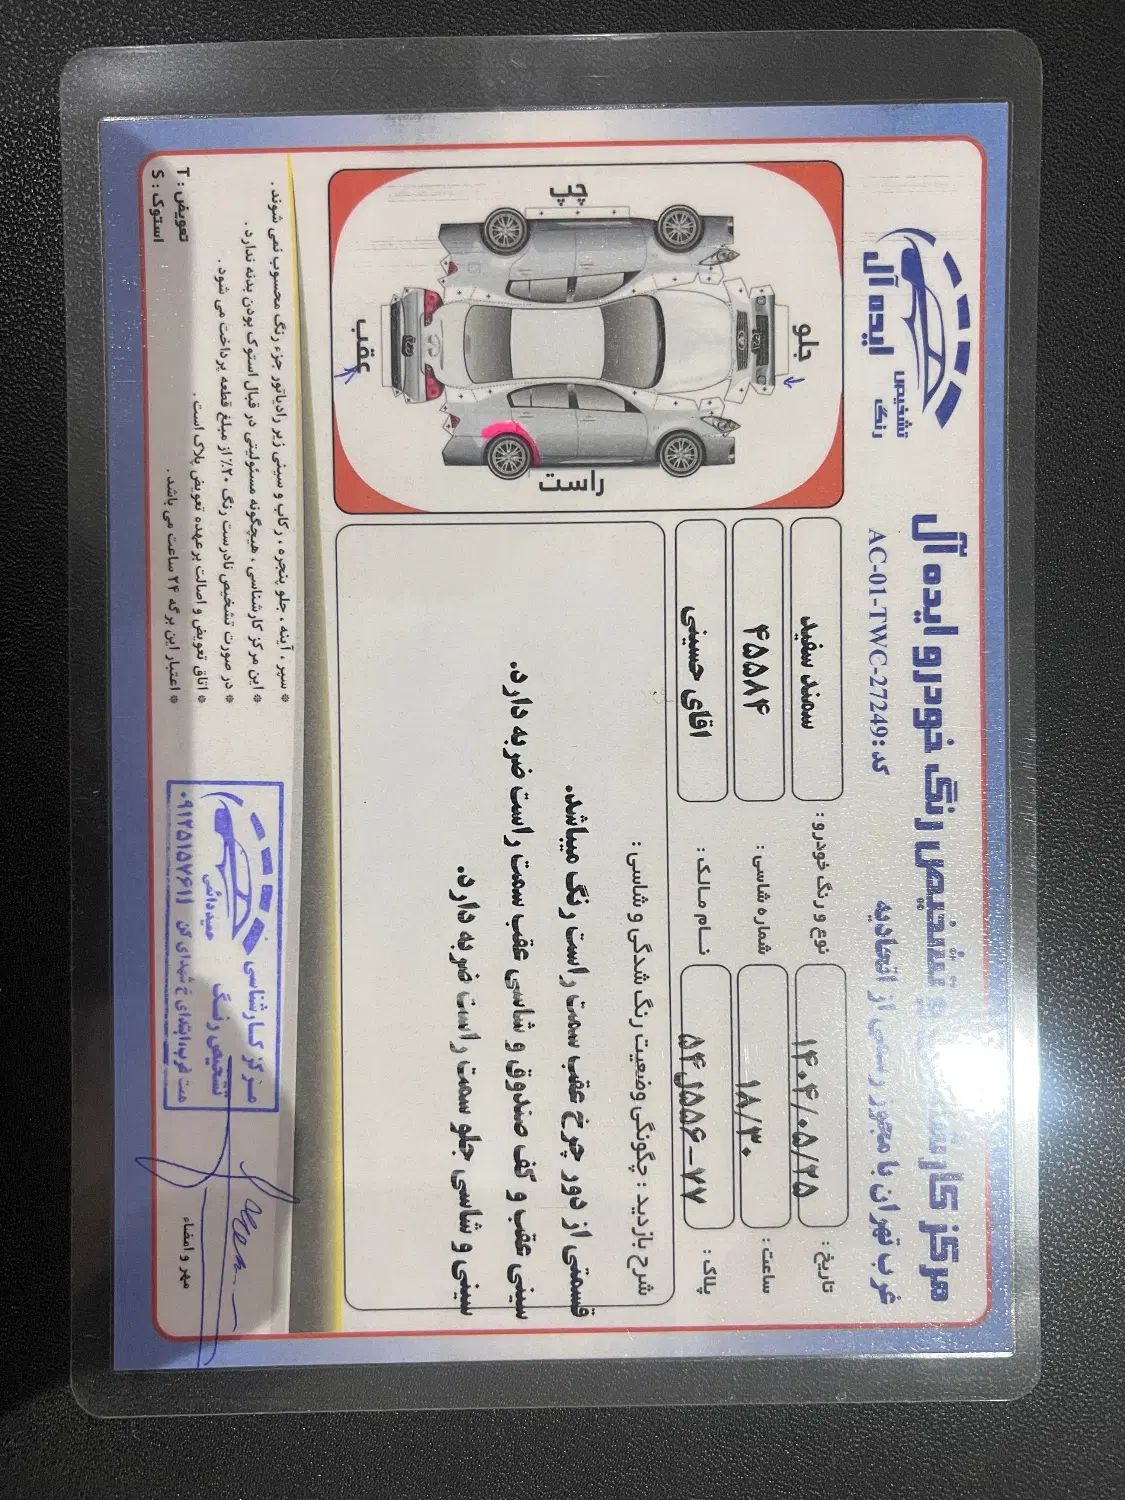 مرکز کارشناسی و تشخیص رنگ خودرو ایده آل
غرب تهران با مجوز رسمی از اتحادیه
کد :AC-01-TWC-27249
ایده آل
تشخیص رنگ
تاریخ : ۱۴۰۴/۰۵/۲۵
نوع و رنگ خودرو : سمند سفید
ساعت : ۱۸/۳۰
شماره شاسی : ۴۵۵۸۴
پلاک : ۵۴ل۵۵۶-۷۷
نام مالک : اقای حسینی
جلو
عقب
چپ
راست
شرح بازدید : چگونگی وضعیت رنگ شدگی و شاسی :
قسمتی از دور چرخ عقب سمت راست رنگ میباشد.
سینی عقب و کف صندوق و شاسی عقب سمت راست ضربه دارد.
سینی و شاسی جلو سمت راست ضربه دارد.
* سپر ، آینه ، جلو پنجره ، رکاب و سینی زیر رادیاتور جزء رنگ محسوب نمی شوند .
* این مرکز کارشناسی ، هیچگونه مسئولیتی در قبال استوک بودن بدنه ندارد.
* در صورت تشخیص نادرست رنگ ۲۰٪ از مبلغ قطعه پرداخت می شود .
* اتاق تعویض و اصالت برعهده تعویض پلاک است .
* اعتبار این برگه ۲۴ ساعت می باشد .
تعویض : T
استوک : S
مهر و امضاء
مرکز کارشناسی
تشخیص رنگ
۰۹۱۲۵۱۵۷۶۱۱